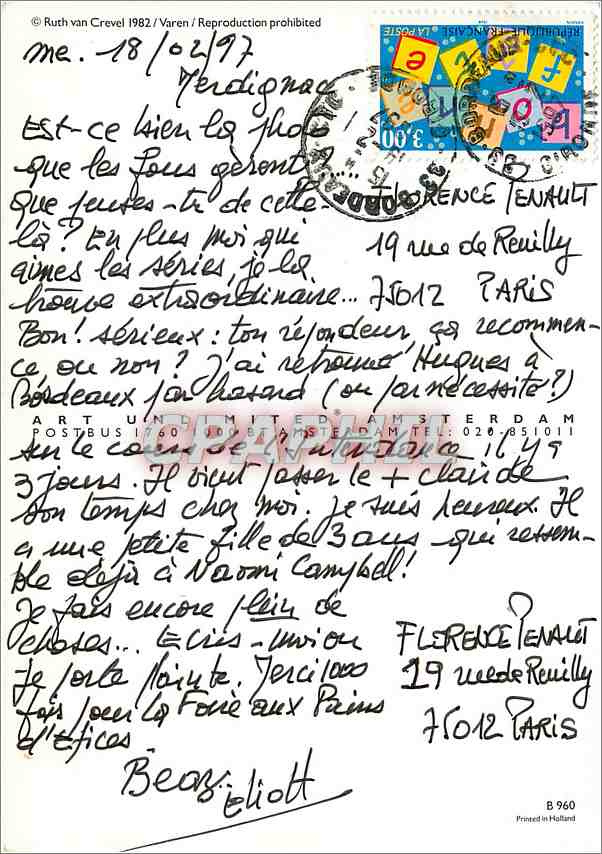 © Ruth van Crevel 1982 / Varen / Reproduction prohibited
me. 18/02/97
RÉPUBLIQUE FRANÇAISE
LA POSTE
3,00
33 BORDEAUX
Est-ce bien la photo
que les fous gèrent?
que penses-tu de cette-
là? En plus moi qui
aimes les séries, je la
trouve extraordinaire...
FLORENCE PENAULT
19 rue de Reuilly
75012 PARIS
Bon! sérieux: ton répondeur, ça recommen-
ce, ou non? J'ai retrouvé Hugues à
Bordeaux par hasard (ou par nécessité?)
ART UNLIMITED AMSTERDAM
POSTBUS 1760 AMSTERDAM TEL: 020-851011
CPAPHIL
sur le cours de l'Intendance il y a
3 jours. Il vient passer le + clair de
son temps chez moi. Je suis heureux. Il
a une petite fille de 3 ans qui ressem-
ble déjà à Naomi Campbell!
Je fais encore plein de
choses... Ecris-moi ou
Je porte plainte. Merci 1000
fois pour la Foire aux Pains
d'Epices
FLORENCE PENAULT
19 rue de Reuilly
75012 PARIS
Eliott
B 960
Printed in Holland